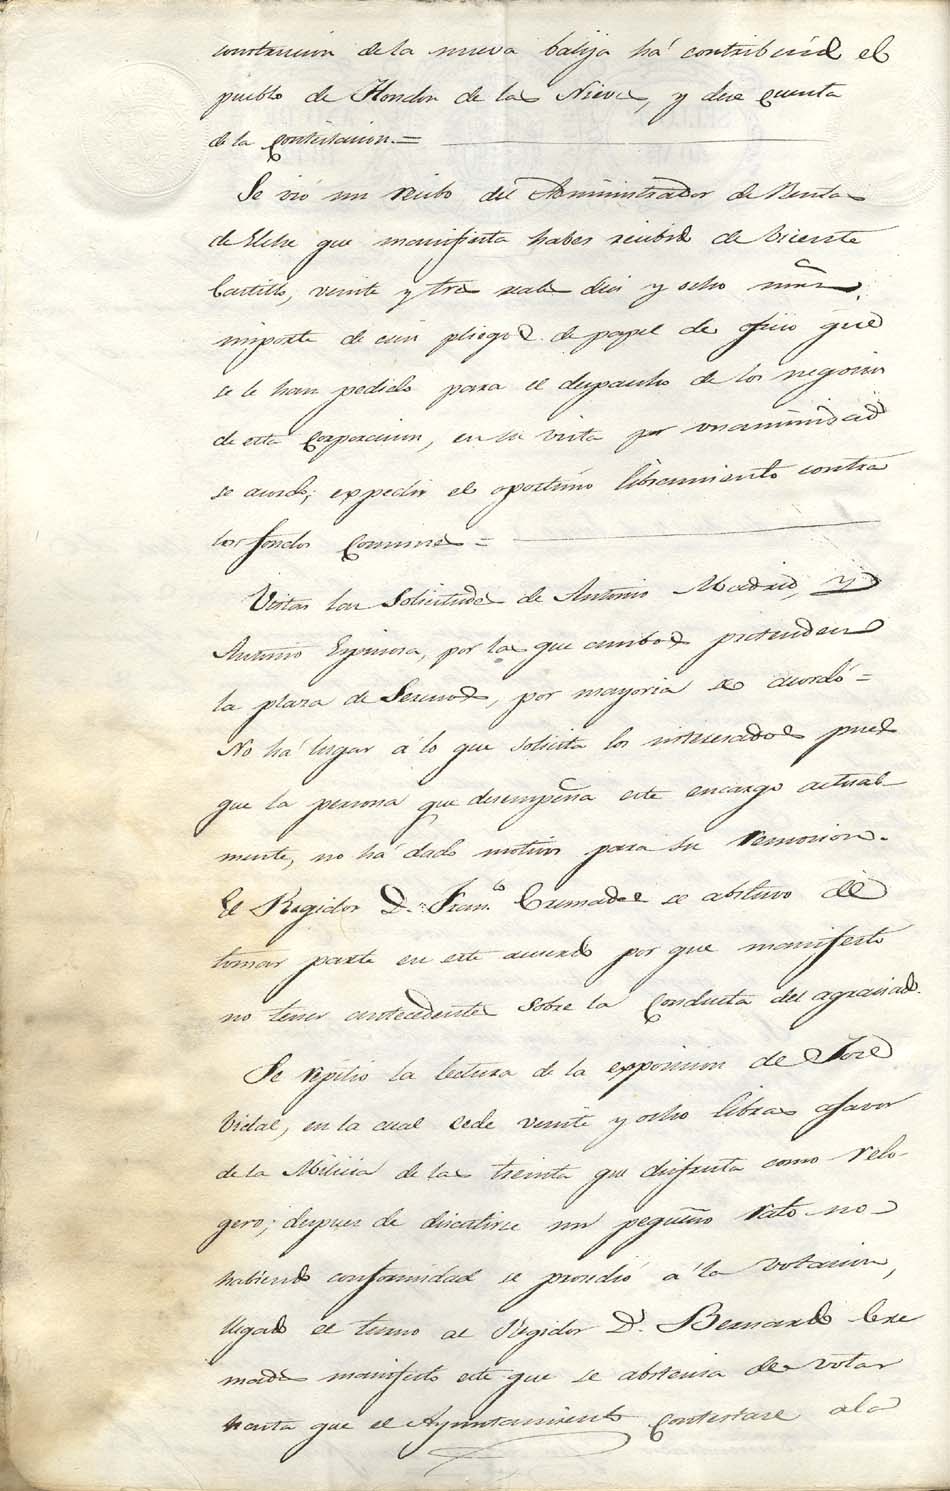 construccion de la nueva balija há contribuid el
pueblo de Hondon de las Nieves, y dése cuenta
de la Contestacion.=
Se vió un recibo del Administrador de Rentas
de Elche que manifiesta haber recibid de Vicente
Castillo, veinte y tres reales dies y ocho mrs.
importe de cien pliegos de papel de oficio que
se le han pedido para el despacho de los negocios
de esta Corporacion, en su vista por unanimidad
se acordó; expedir el oportuno libramiento contra
los fondos Comunes =
Vistas las Solicitudes de Antonio Madrid, y
Antonio Espinosa, por las que ambos pretenden
la plaza de Serenos, por mayoria se acordó =
No há lugar á lo que solicita los interesados pues
que la persona que desempeña este encargo actual-
mente, no há dado motivos para su remocion.
El Regidor D. Franco. Cremades se abstuvo de
tomar parte en este acuerdo por que manifestó
no tener antecedentes sobre la Conducta del agraciado.
Se repitio la lectura de la exposicion de José
Vidal, en la cual cede veinte y ocho libras afavor
de la Milicia de las treinta que disfruta como relo-
gero; despues de discutirse un pequeño rato no
habiendo conformidad se procedió á la votacion,
llegado el turno al Regidor D. Bernardo Cre
mades manifestó este que se abstenia de votar
hasta que el Ayuntamiento Contestase ala